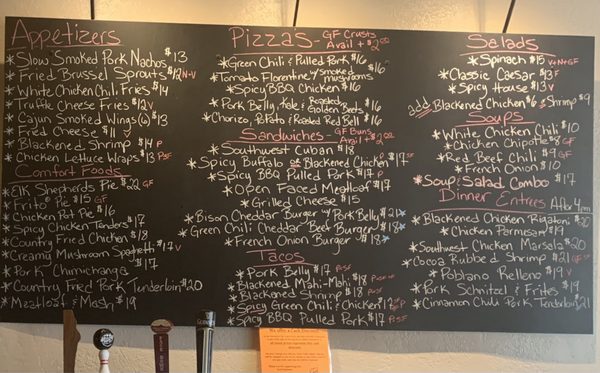 Appetizers
*Slow Smoked Pork Nachos $13
*Fried Brussel Sprouts $12 N+V
*White Chicken Chili Fries $14
*Truffle Cheese Fries $12 V
*Cajun Smoked Wings (6) $13
*Fried Cheese $11 V
*Blackened Shrimp $14 P
*Chicken Lettuce Wraps $13 P+SF
Comfort Foods
*Elk Shepherds Pie $22 GF
*Frito® Pie $15 GF
*Chicken Pot Pie $16
*Spicy Chicken Tenders $17
*Country Fried Chicken $18
*Creamy Mushroom Spaghetti $17 V
*Pork Chimichanga $17
*Country Fried Pork Tenderloin $20
*Meatloaf & Mash $19
Pizzas - GF Crusts Avail + $2.00
*Green Chili & Pulled Pork $16
*Tomato Florentine w/ smoked mushrooms $16
*Spicy BBQ Chicken $16
*Pork Belly, Kale & Roasted Golden Beets $16
*Chorizo, Potato & Roasted Red Bell $16
Sandwiches - GF Buns Avail + $2.00
*Southwest Cuban $18
*Spicy Buffalo or Blackened Chicken $17 SF
*Spicy BBQ Pulled Pork $17 P
*Open Faced Meatloaf $17
*Grilled Cheese $15
*Bison Cheddar Burger w/ Pork Belly $21
*Green Chili Cheddar Beef Burger $18
*French Onion Burger $18
Tacos
*Pork Belly $17 P+SF
*Blackened Mahi-Mahi $18 P+SF
*Blackened Shrimp $18 P+SF
*Spicy Green Chili & Chicken $17 SF+P
*Spicy BBQ Pulled Pork $17 P+SF
Salads
*Spinach $15 V+N+GF
*Classic Caesar $13 F
*Spicy House $13 V
add Blackened Chicken $6 & Shrimp $9
Soups
*White Chicken Chili $10
*Chicken Chipotle $8 GF
*Red Beef Chili $9 GF
*French Onion $10
*Soup & Salad Combo $17
Dinner Entrees After 4pm
*Blackened Chicken Rigatoni $20
*Chicken Parmesan $19
*Southwest Chicken Marsala $20
*Cocoa Rubbed Shrimp $21
*Poblano Relleno $19 V
*Pork Schnitzel & Frites $19
*Cinnamon Chili Pork Tenderloin $21
We offer a Cash Discount